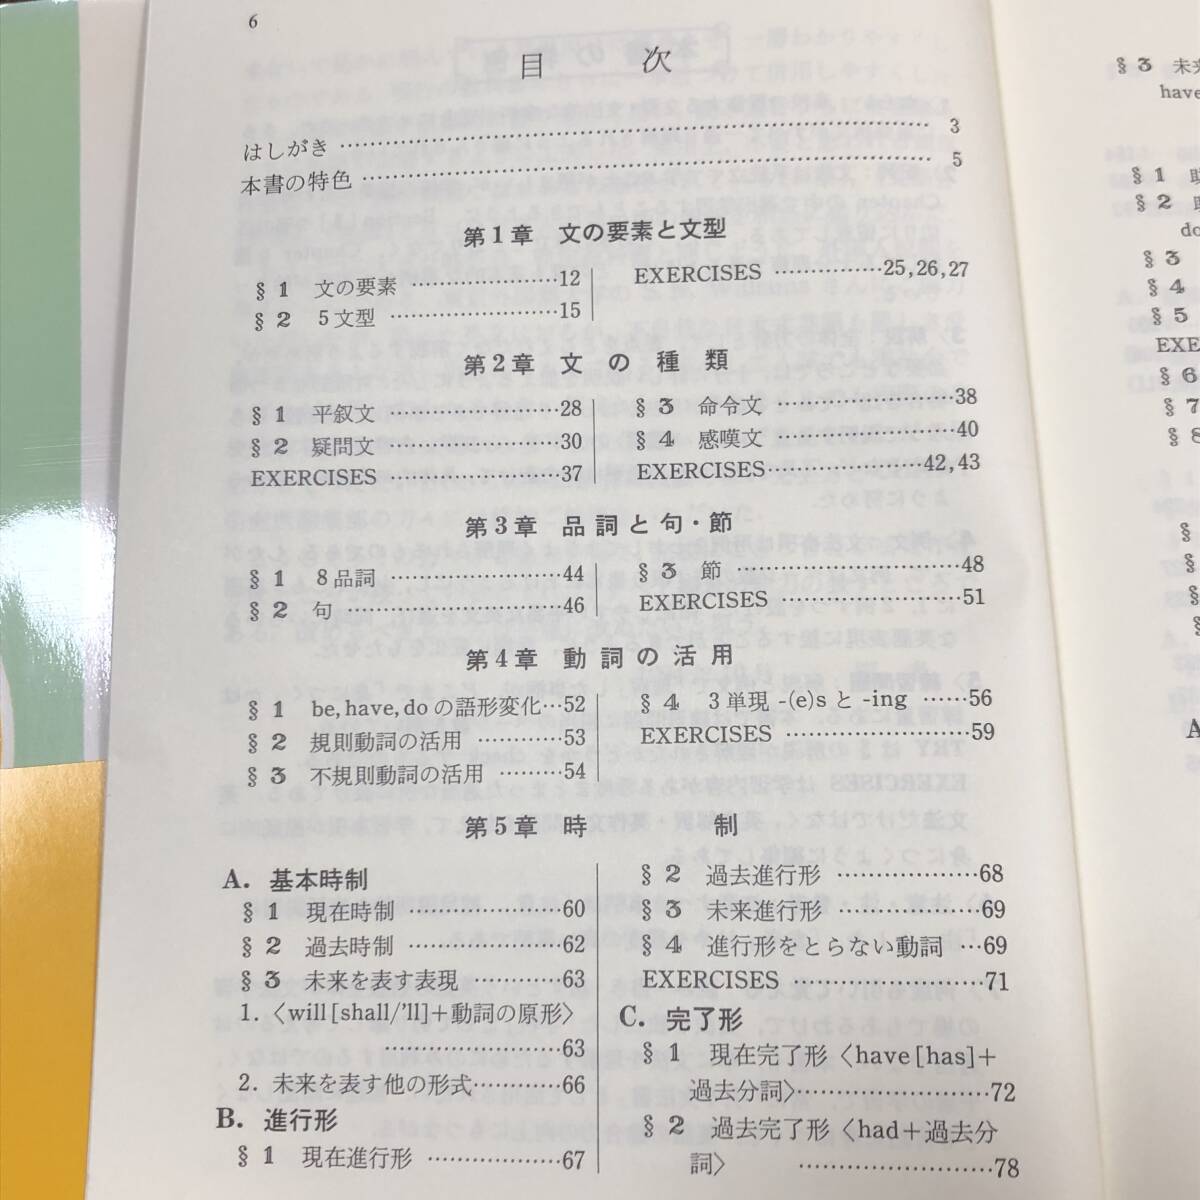 6
目次
はしがき ……………………………………………… 3
本書の特色 ……………………………………………… 5
第1章 文の要素と文型
§1 文の要素 ………………12
§2 5文型 ………………15
EXERCISES …………25,26,27
第2章 文の種類
§1 平叙文 ………………28
§2 疑問文 ………………30
EXERCISES ………………37
§3 命令文 ………………38
§4 感嘆文 ………………40
EXERCISES………………42,43
第3章 品詞と句・節
§1 8品詞 ………………44
§2 句 ………………46
§3 節 ………………48
EXERCISES ………………51
第4章 動詞の活用
§1 be, have, do の語形変化…52
§2 規則動詞の活用 …………53
§3 不規則動詞の活用 ………54
§4 3単現 -(e)s と -ing ……56
EXERCISES ………………59
第5章 時制
A. 基本時制
§1 現在時制 ………………60
§2 過去時制 ………………62
§3 未来を表す表現 …………63
1.〈will[shall/'ll]+動詞の原形〉
………………63
2. 未来を表す他の形式…………66
B. 進行形
§1 現在進行形 ………………67
§2 過去進行形 ………………68
§3 未来進行形 ………………69
§4 進行形をとらない動詞 …69
EXERCISES ………………71
C. 完了形
§1 現在完了形〈have[has]+
過去分詞〉………………72
§2 過去完了形〈had+過去分
詞〉 ………………78
§3 未来
have
§1
§2
do
§3
§4
§5
EXER
§6
§7
§8
§
§
§
§
A